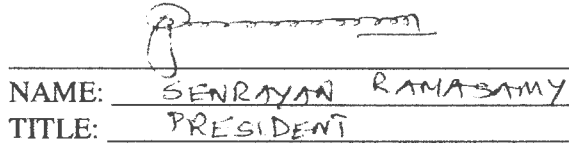 NAME: SENRAYAN RAMASAMY
TITLE: PRESIDENT